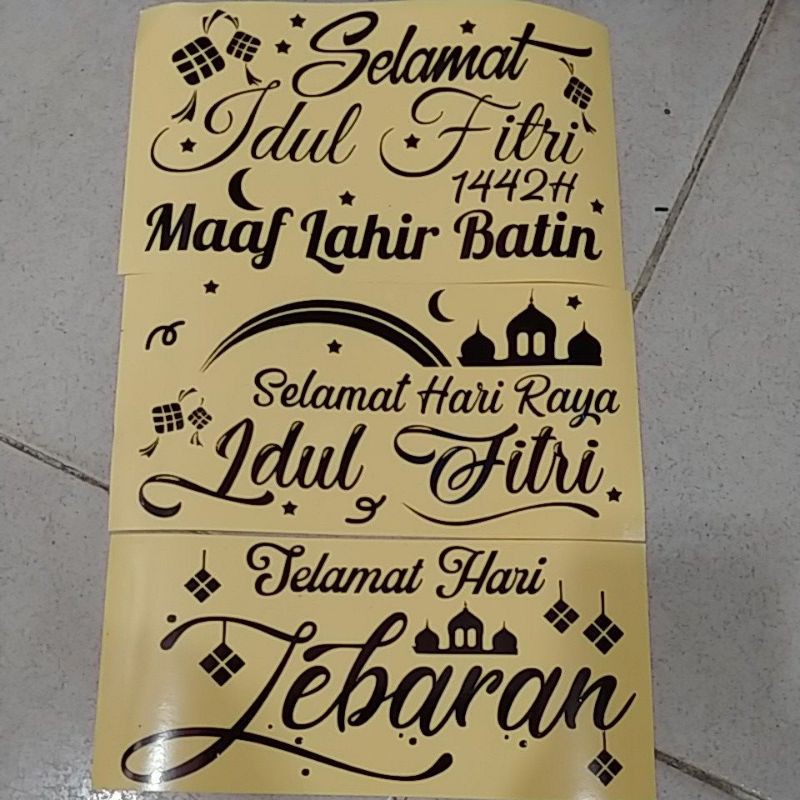 Selamat
Idul Fitri
1442H
Maaf Lahir Batin
Selamat Hari Raya
Idul Fitri
Selamat Hari
Lebaran